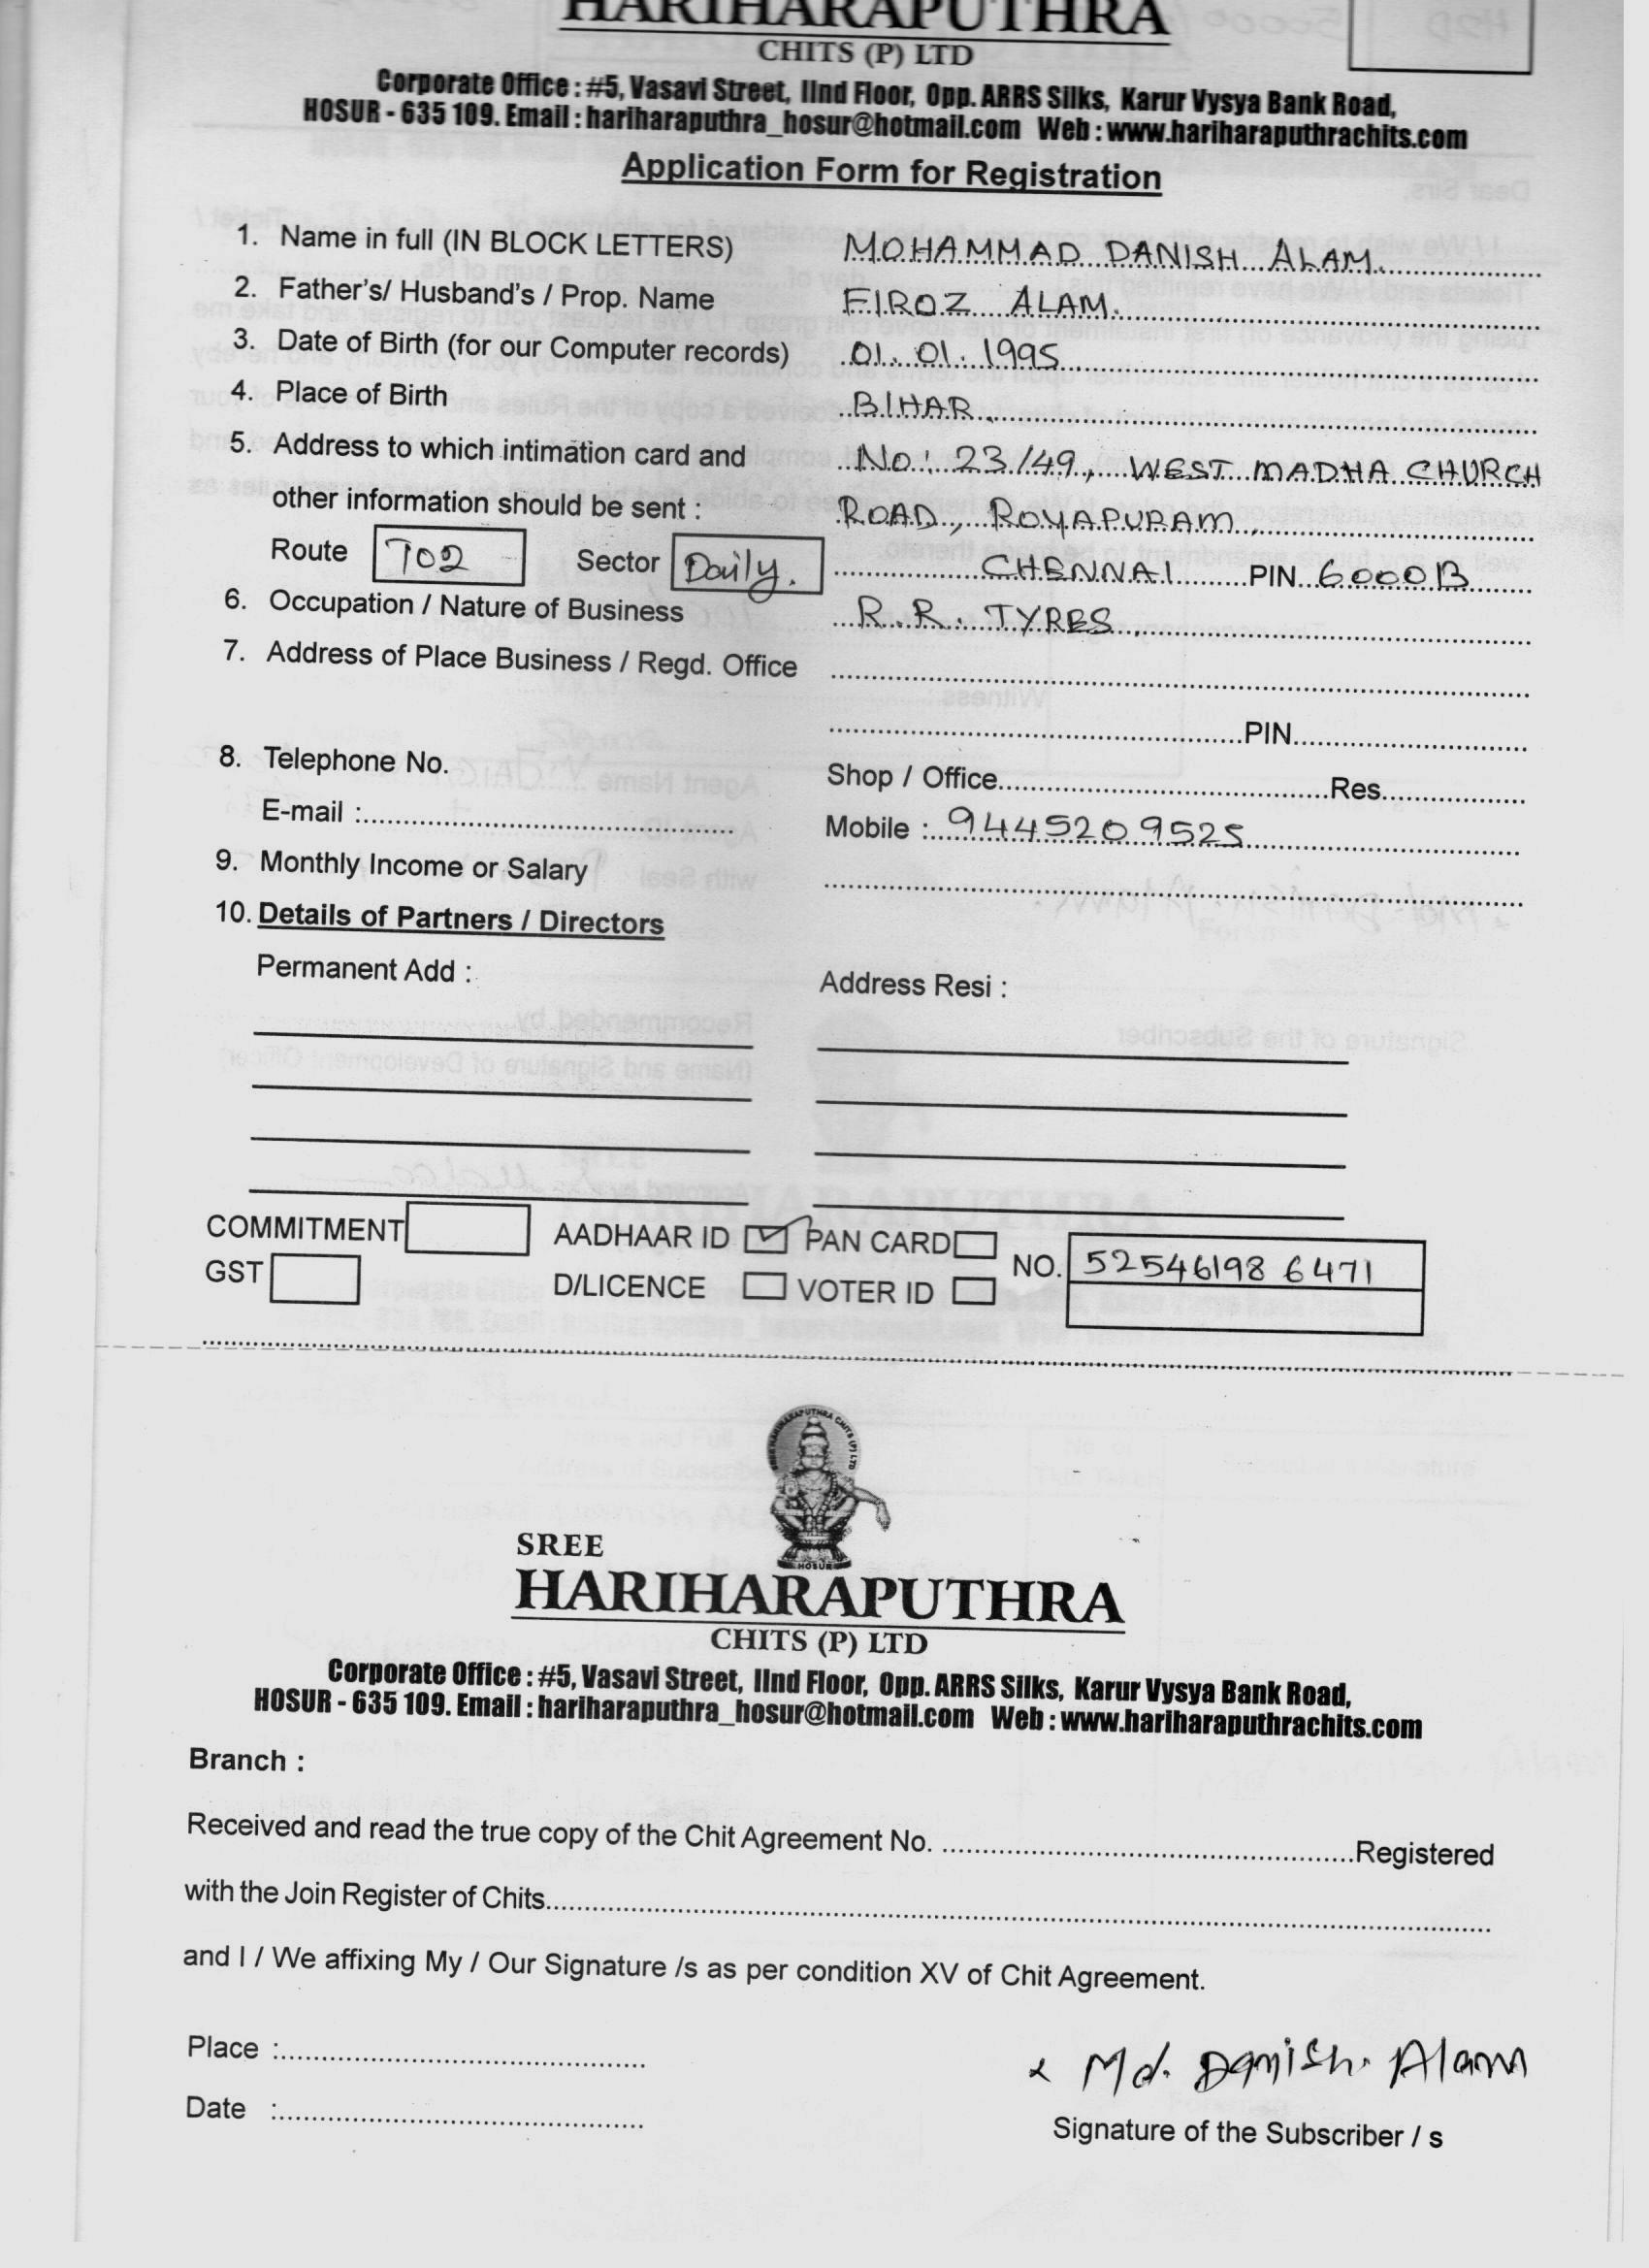 HARIHARAPUTHRA
CHITS (P) LTD
Corporate Office : #5, Vasavi Street, IInd Floor, Opp. ARRS Silks, Karur Vysya Bank Road,
HOSUR - 635 109. Email : hariharaputhra_hosur@hotmail.com Web : www.hariharaputhrachits.com
Application Form for Registration
1. Name in full (IN BLOCK LETTERS) MOHAMMAD DANISH ALAM.
2. Father's/ Husband's / Prop. Name FIROZ ALAM.
3. Date of Birth (for our Computer records) 01.01.1995
4. Place of Birth BIHAR
5. Address to which intimation card and No: 23/49, WEST MADHA CHURCH
other information should be sent : ROAD, ROYAPURAM,
Route T02 Sector Daily. CHENNAI PIN 600013
6. Occupation / Nature of Business R.R. TYRES
7. Address of Place Business / Regd. Office
PIN
8. Telephone No. Shop / Office Res.
E-mail : Mobile : 9445209525
9. Monthly Income or Salary
10. Details of Partners / Directors
Permanent Add : Address Resi :
COMMITMENT AADHAAR ID ✓ PAN CARD
GST D/LICENCE VOTER ID NO. 52546198 6471
SREE
HARIHARAPUTHRA
CHITS (P) LTD
Corporate Office : #5, Vasavi Street, IInd Floor, Opp. ARRS Silks, Karur Vysya Bank Road,
HOSUR - 635 109. Email : hariharaputhra_hosur@hotmail.com Web : www.hariharaputhrachits.com
Branch :
Received and read the true copy of the Chit Agreement No. Registered
with the Join Register of Chits
and I / We affixing My / Our Signature /s as per condition XV of Chit Agreement.
Place :
Date :
x Md. Danish. Alam
Signature of the Subscriber / s